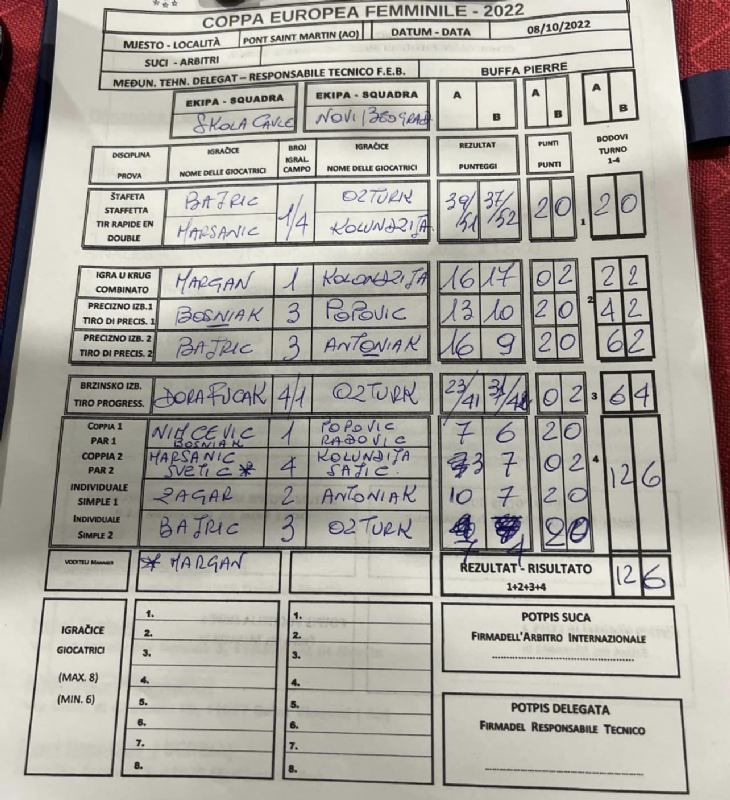 COPPA EUROPEA FEMMINILE - 2022
MJESTO - LOCALITÀ PONT SAINT MARTIN (AO) DATUM - DATA 08/10/2022
SUCI - ARBITRI
MEĐUN. TEHN. DELEGAT – RESPONSABILE TECNICO F.E.B. BUFFA PIERRE
EKIPA - SQUADRA EKIPA - SQUADRA A B A B A B
ŠKOLA ČAVLE NOVI BEOGRAD
DISCIPLINA IGRAČICE BROJ IGRAČICE REZULTAT PUNTI BODOVI
PROVA NOME DELLE GIOCATRICI IGRAL. CAMPO NOME DELLE GIOCATRICI PUNTEGGI PUNTI TURNO 1-4
ŠTAFETA BAJRIC OZTURK
STAFFETTA 1/4 39/51 37/52 2 0 1 2 0
TIR RAPIDE EN DOUBLE MARSANIC KOLUNDZIJA
IGRA U KRUG COMBINATO MARGAN 1 KOLONDZIJA 16 17 0 2 2 2
PRECIZNO IZB.1 TIRO DI PRECIS. 1 BOSNIAK 3 POPOVIC 13 10 2 0 2 4 2
PRECIZNO IZB. 2 TIRO DI PRECIS. 2 BAJRIC 3 ANTONIAK 16 9 2 0 6 2
BRZINSKO IZB. TIRO PROGRESS. DORA FUCAK 4/1 OZTURK 23/41 0 2 3 6 4
COPPIA 1 NIMCEVIC 1 POPOVIC 7 6 2 0
PAR 1 BOSNIAK RADOVIC
COPPIA 2 MARSANIC 4 KOLUNDIJA 3 7 0 2 4 12 6
PAR 2 SVETIC * SAJIC
INDIVIDUALE SIMPLE 1 ZAGAR 2 ANTONIAK 10 7 2 0
INDIVIDUALE SIMPLE 2 BAJRIC 3 OZTURK 7 4 2 0
VODITELJ MANAGER * MARGAN REZULTAT - RISULTATO 12 6
1+2+3+4
IGRAČICE
GIOCATRICI
(MAX. 8)
(MIN. 6)
1. 1.
2. 2.
3. 3.
4. 4.
5. 5.
6. 6.
7. 7.
8. 8.
POTPIS SUCA
FIRMADELL'ARBITRO INTERNAZIONALE
POTPIS DELEGATA
FIRMADEL RESPONSABILE TECNICO